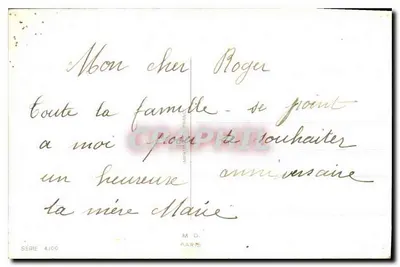 Mon cher Roger
toute la famille - se joint
a moi pour te souhaiter
un heureux anniversaire
ta mère Marie
M D
PARIS